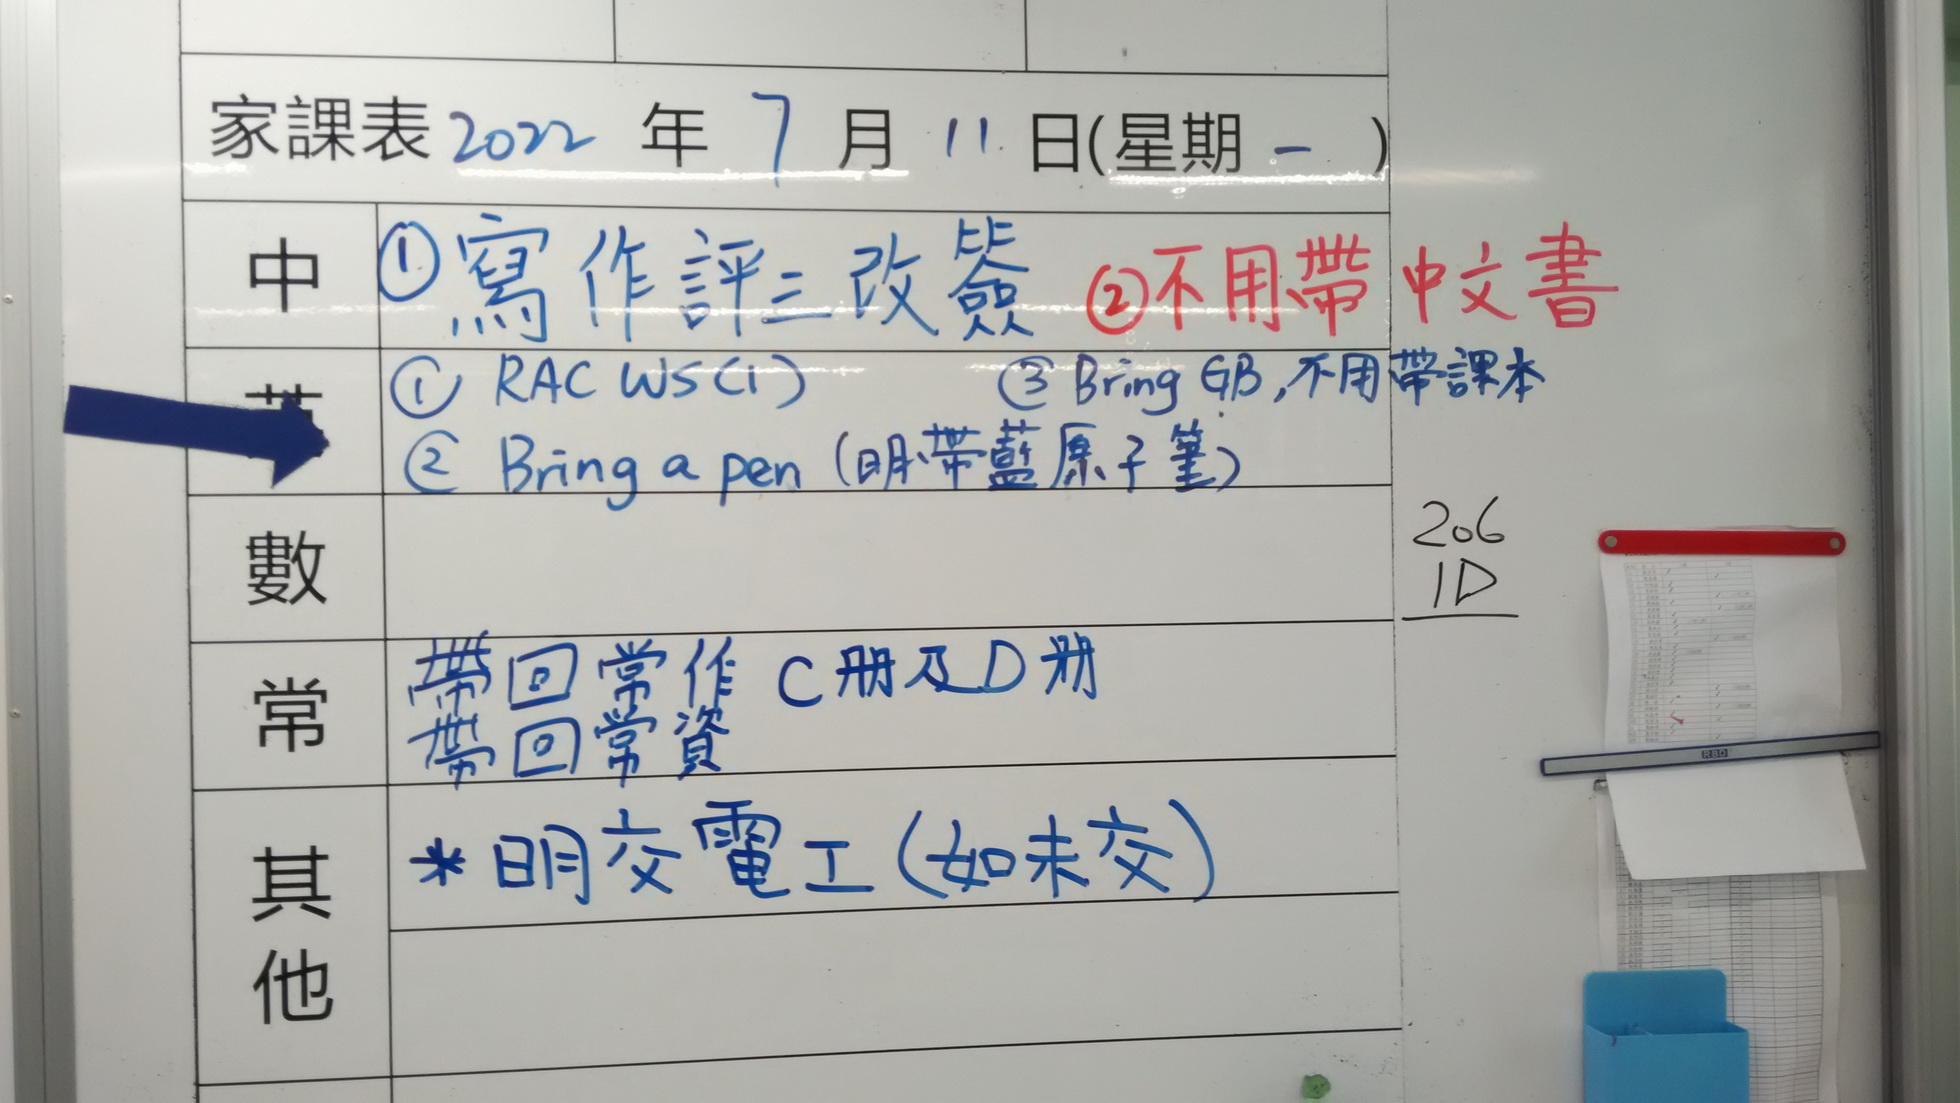 家課表 2022 年 7 月 11 日(星期 一 )
中 ①寫作評三改簽 ②不用帶中文書
英 ① RAC WS(1) ③ Bring GB,不用帶課本
② Bring a pen (明帶藍原子筆)
數
206
1D
常 帶回常作 C冊及D冊
帶回常資
其他 *明交電工(如未交)
RBD